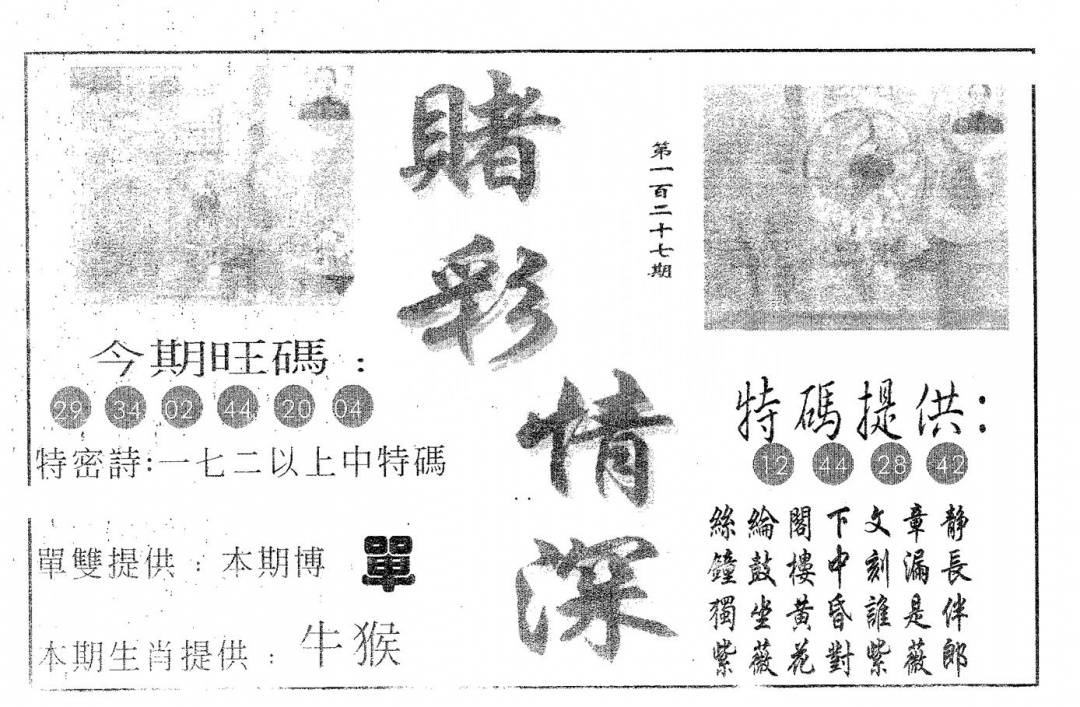 賭彩情深
第一百二十七期
今期旺碼：
29 34 02 44 20 04
特密詩:一七二以上中特碼
單雙提供：本期博 單
本期生肖提供：牛猴
特碼提供:
12 44 28 42
絲綸閣下文章静
鐘鼓樓中刻漏長
獨坐黃昏誰是伴
紫薇花對紫薇郎